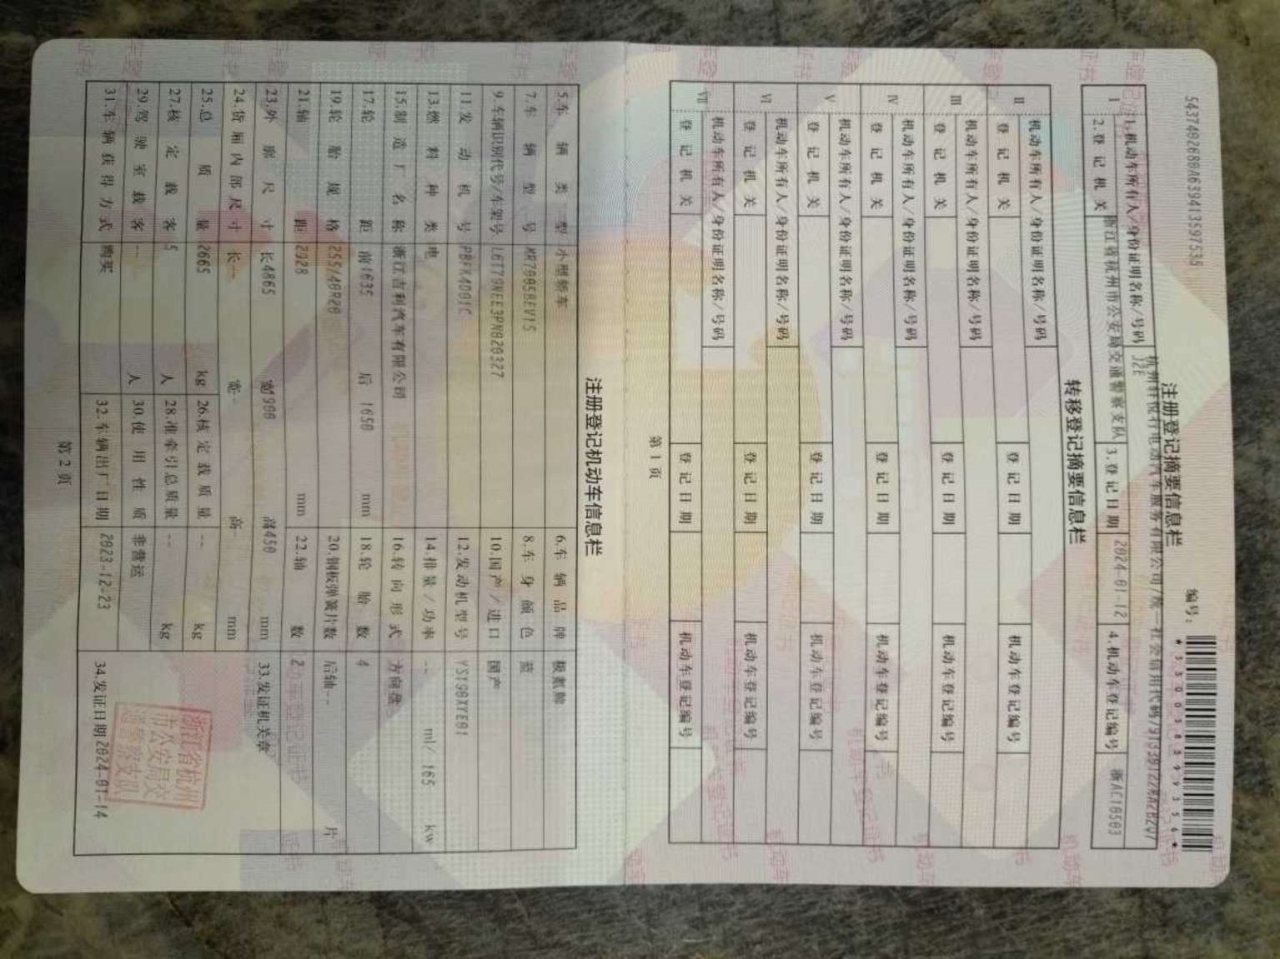 543740268
编号：
注册登记摘要信息栏
I
1.机动车所有人/身份证明名称/号码
杭州
行电动汽车服务有限公司/统一社会信用代码/
2.登记机关
浙江省杭州市公安局交通警察支队
3.登记日期
2024-01-12
4.机动车登记编号
转移登记摘要信息栏
II
机动车所有人/身份证明名称/号码
登记机关
登记日期
机动车登记编号
III
机动车所有人/身份证明名称/号码
登记机关
登记日期
机动车登记编号
IV
机动车所有人/身份证明名称/号码
登记机关
登记日期
机动车登记编号
V
机动车所有人/身份证明名称/号码
登记机关
登记日期
机动车登记编号
VI
机动车所有人/身份证明名称/号码
登记机关
登记日期
机动车登记编号
VII
机动车所有人/身份证明名称/号码
登记机关
登记日期
机动车登记编号
第1页
注册登记机动车信息栏
5.车辆类型 小型轿车
6.车辆品牌 极氪牌
7.车辆型号 MR7005BEV15
8.车身颜色 蓝
9.车辆识别代号/车架号 L6T79NEE3PN020327
10.国产/进口 国产
11.发动机号 PBFK4001C
12.发动机型号 YS190XYE01
13.燃料种类 电
14.排量/功率 -- ml/ 165 kw
15.制造厂名称 浙江吉利汽车有限公司
16.转向形式 方向盘
17.轮距 前1635 后 1650 mm
18.轮胎数 4
19.轮胎规格 255/40R20
20.钢板弹簧片数 后轴-- 片
21.轴距 2928 mm
22.轴数 2
23.外廓尺寸 长4865 宽1900 高1450 mm
33.发证机关章
24.货厢内部尺寸 长-- 宽-- 高-- mm
25.总质量 2665 kg
26.核定载质量 -- kg
浙江省杭州
市公安局交
通警察支队
27.核定载客 5 人
28.准牵引总质量 -- kg
29.驾驶室载客 -- 人
30.使用性质 非营运
31.车辆获得方式 购买
32.车辆出厂日期 2023-12-23
34.发证日期 2024-01-14
第2页